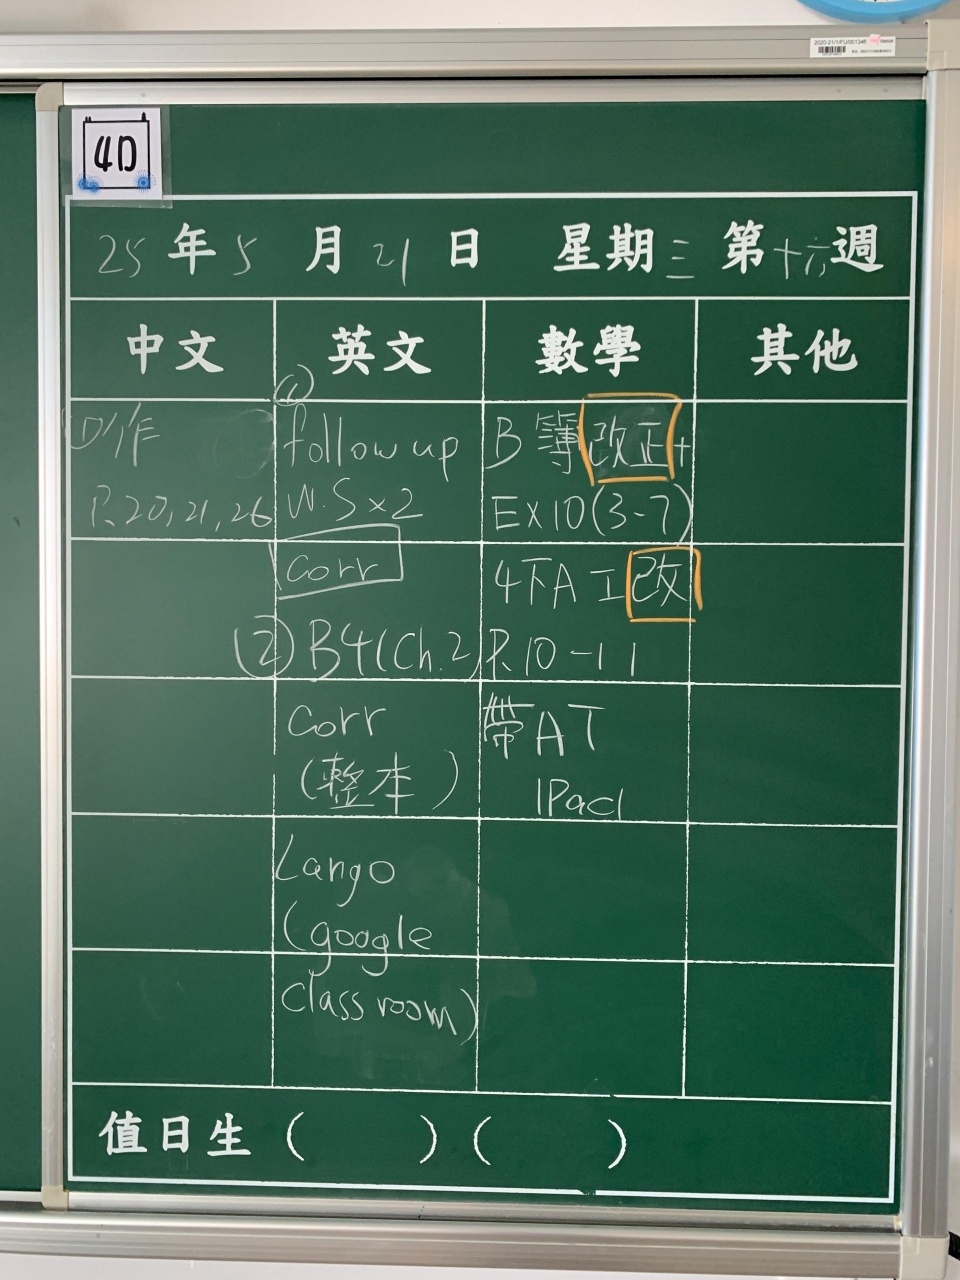 4D
25年5月21日 星期三 第十六週
中文 英文 數學 其他
①作
P.20,21,26
(1)
follow up
W.S×2
corr
② B4(Ch.2)
corr
(整本)
Lango
(google
classroom)
B簿改正+
EX10(3-7)
4下A工改
P.10-11
帶AT
IPad
值日生( )( )